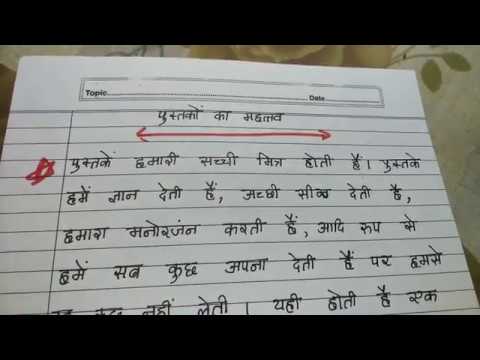 Topic Date
पुस्तकों का महत्त्व
पुस्तकें हमारी सच्ची मित्र होती हैं। पुस्तके
हमें ज्ञान देती हैं, अच्छी सीख देती है,
हमारा मनोरजंन करती हैं, आदि रूप से
हमें सब कुछ अपना देती हैं पर हमसे
नहीं लेती। यही होती है एक